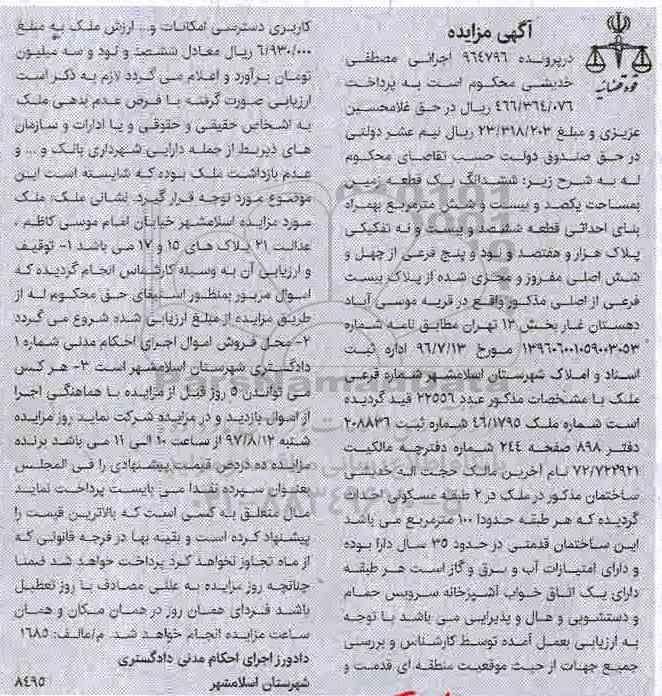 آگهی مزایده
قوه قضائیه
درپرونده ۹۶۴۷۹۶ اجرائی مصطفی
خدیشی محکوم است به پرداخت
۴۶۶/۳۶۴/۰۷۶ ریال در حق غلامحسین
عزیزی و مبلغ ۲۳/۳۱۸/۲۰۳ ریال نیم عشر دولتی
در حق صندوق دولت حسب تقاضای محکوم
له به شرح زیر: ششدانگ یک قطعه زمین
بمساحت یکصد و بیست و شش مترمربع بهمراه
بنای احداثی قطعه ششصد و بیست و نه تفکیکی
پلاک هزار و هفتصد و نود و پنج فرعی از چهل و
شش اصلی مفروز و مجزی شده از پلاک بیست
فرعی از اصلی مذکور واقع در قریه موسی آباد
دهستان غار بخش ۱۲ تهران مطابق نامه شماره
۱۳۹۶۰۶۰۰۱۰۵۹۰۰۳۰۵۳ مورخ ۹۶/۷/۱۳ اداره ثبت
اسناد و املاک شهرستان اسلامشهر شماره فرعی
ملک با مشخصات مذکور عدد ۲۲۵۵۶ قید گردیده
است شماره ملک ۴۶/۱۷۹۵ شماره ثبت ۲۰۸۸۳۶
دفتر ۸۹۸ صفحه ۲۴۴ شماره دفترچه مالکیت
۷۲/۷۲۳۹۲۱ نام آخرین مالک حجت اله خدیشی
ساختمان مذکور در ملک در ۲ طبقه مسکونی احداث
گردیده که هر طبقه حدودا ۱۰۰ مترمربع می باشد
این ساختمان قدمتی در حدود ۳۵ سال دارا بوده
و دارای امتیازات آب و برق و گاز است هر طبقه
دارای یک اتاق خواب آشپزخانه سرویس حمام
و دستشویی و هال و پذیرایی می باشد با توجه
به ارزیابی بعمل آمده توسط کارشناس و بررسی
جمیع جهات از حیث موقعیت منطقه ای قدمت و
کاربری دسترسی امکانات و... ارزش ملک به مبلغ
۶/۹۳۰/۰۰۰ ریال معادل ششصد و نود و سه میلیون
تومان برآورد و اعلام می گردد لازم به ذکر است
ارزیابی صورت گرفته با فرض عدم بدهی ملک
به اشخاص حقیقی و حقوقی و یا ادارات و سازمان
های ذیربط از جمله دارایی شهرداری بانک و ... و
عدم بازداشت ملک بوده که شایسته است این
موضوع مورد توجه قرار گیرد. نشانی ملک: ملک
مورد مزایده اسلامشهر خیابان امام موسی کاظم ،
عدالت ۲۱ پلاک های ۱۵ و ۱۷ می باشد ۱- توقیف
و ارزیابی آن به وسیله کارشناس انجام گردیده که
اموال مزبور بمنظور استیفای حق محکوم له از
طریق مزایده از مبلغ ارزیابی شده شروع می گردد
۲- محل فروش اموال اجرای احکام مدنی شماره ۱
دادگستری شهرستان اسلامشهر است ۳- هر کس
می تواند ۵ روز قبل از مزایده با هماهنگی اجرا
از اموال بازدید و در مزایده شرکت نماید روز مزایده
شنبه ۹۷/۸/۱۲ از ساعت ۱۰ الی ۱۱ می باشد برنده
مزایده ده درصد قیمت پیشنهادی را فی المجلس
بعنوان سپرده نقدا می بایست پرداخت نماید
مال متعلق به کسی است که بالاترین قیمت را
پیشنهاد کرده است و بقیه بها در فرجه قانونی که
از ماه تجاوز نخواهد کرد پرداخت خواهد شد ضمنا
چنانچه روز مزایده به عللی مصادف با روز تعطیل
باشد فردای همان روز در همان مکان و همان
ساعت مزایده انجام خواهد شد. م/مالف: ۱۶۸۵
دادورز اجرای احکام مدنی دادگستری
شهرستان اسلامشهر
۸۴۹۵
ParsNamadData